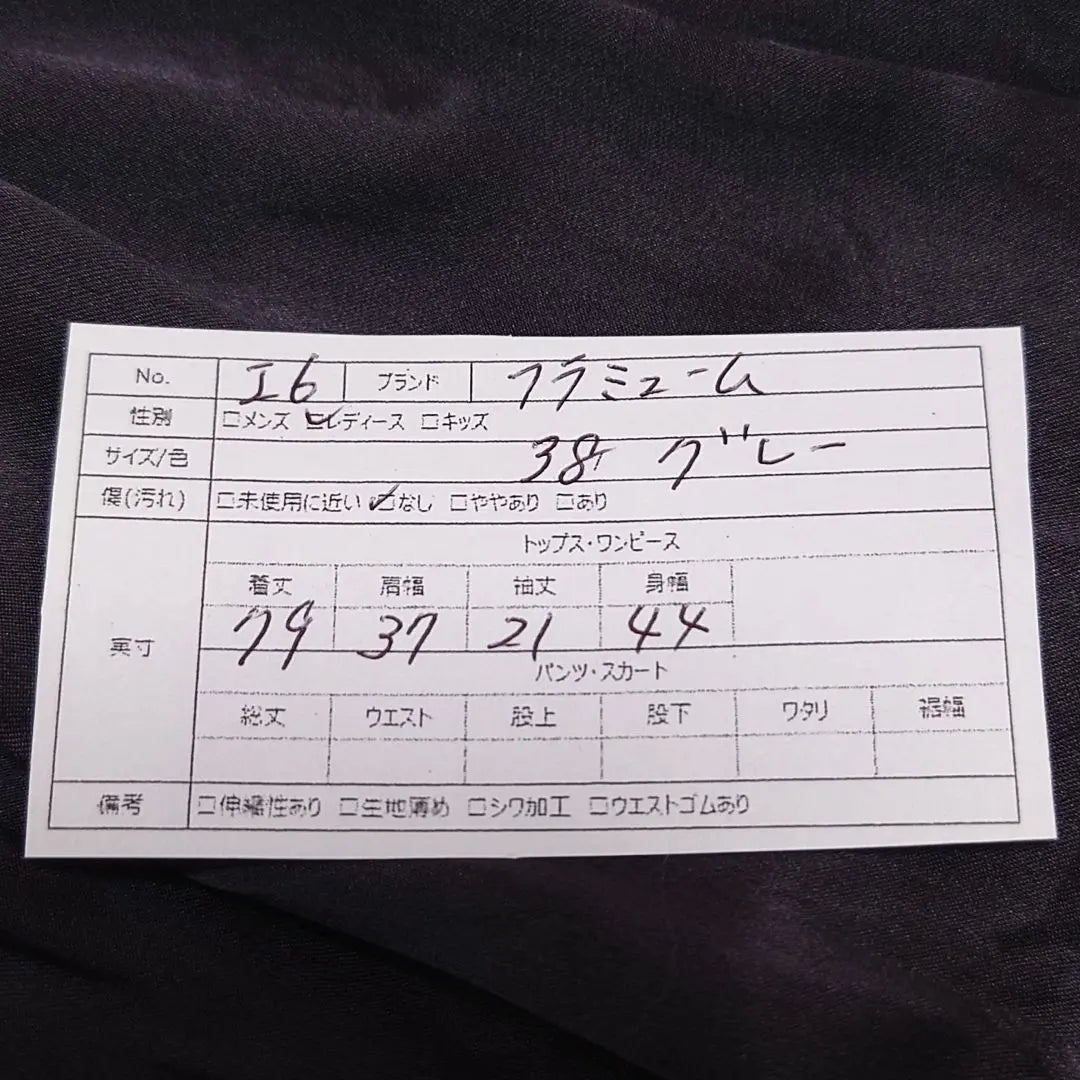 No. I6 ブランド フラミューム
性別 □メンズ ☑レディース □キッズ
サイズ/色 38 グレー
傷(汚れ) □未使用に近い ☑なし □ややあり □あり
トップス・ワンピース
着丈 肩幅 袖丈 身幅
実寸 79 37 21 44
パンツ・スカート
総丈 ウエスト 股上 股下 ワタリ 裾幅
備考 □伸縮性あり □生地薄め □シワ加工 □ウエストゴムあり